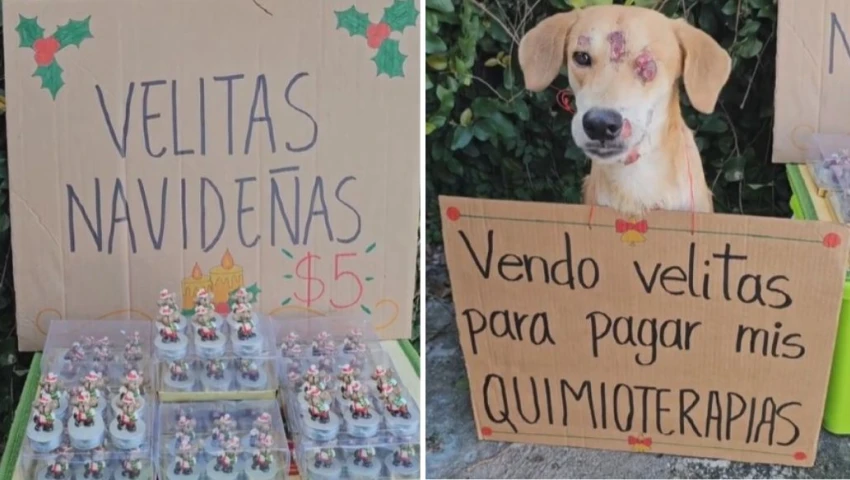 VELITAS
NAVIDEÑAS
$5
Vendo velitas
para pagar mis
QUIMIOTERAPIAS
N